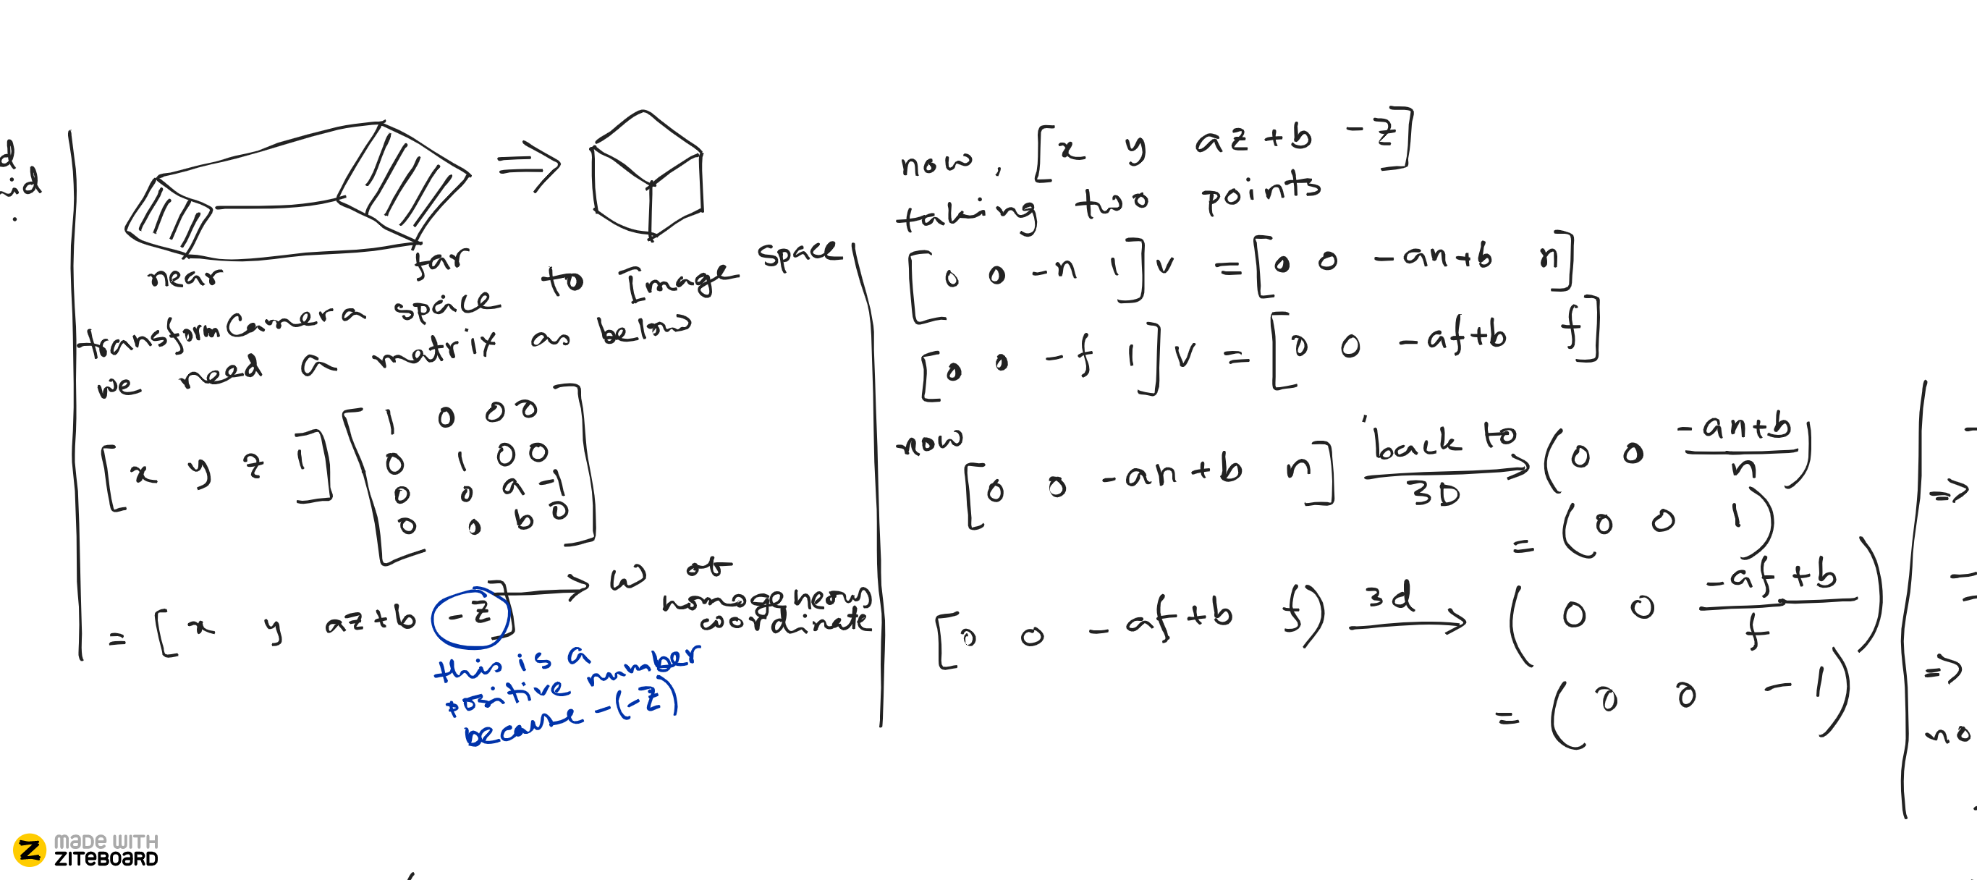 d
id
.
near far
transform Camera space to Image space
we need a matrix as below
[x y z 1] [1 0 0 0
0 1 0 0
0 0 a -1
0 0 b 0]
= [x y az+b -z] → w of
homogeneous
coordinate
this is a
positive number
because -(-z)
now, [x y az+b -z]
taking two points
[0 0 -n 1]v = [0 0 -an+b n]
[0 0 -f 1]v = [0 0 -af+b f]
now
[0 0 -an+b n] back to 3D → (0 0 (-an+b)/n)
= (0 0 1)
[0 0 -af+b f) 3d → (0 0 (-af+b)/f)
= (0 0 -1)
=>
=>
no
MADE WITH
ZITEBOARD